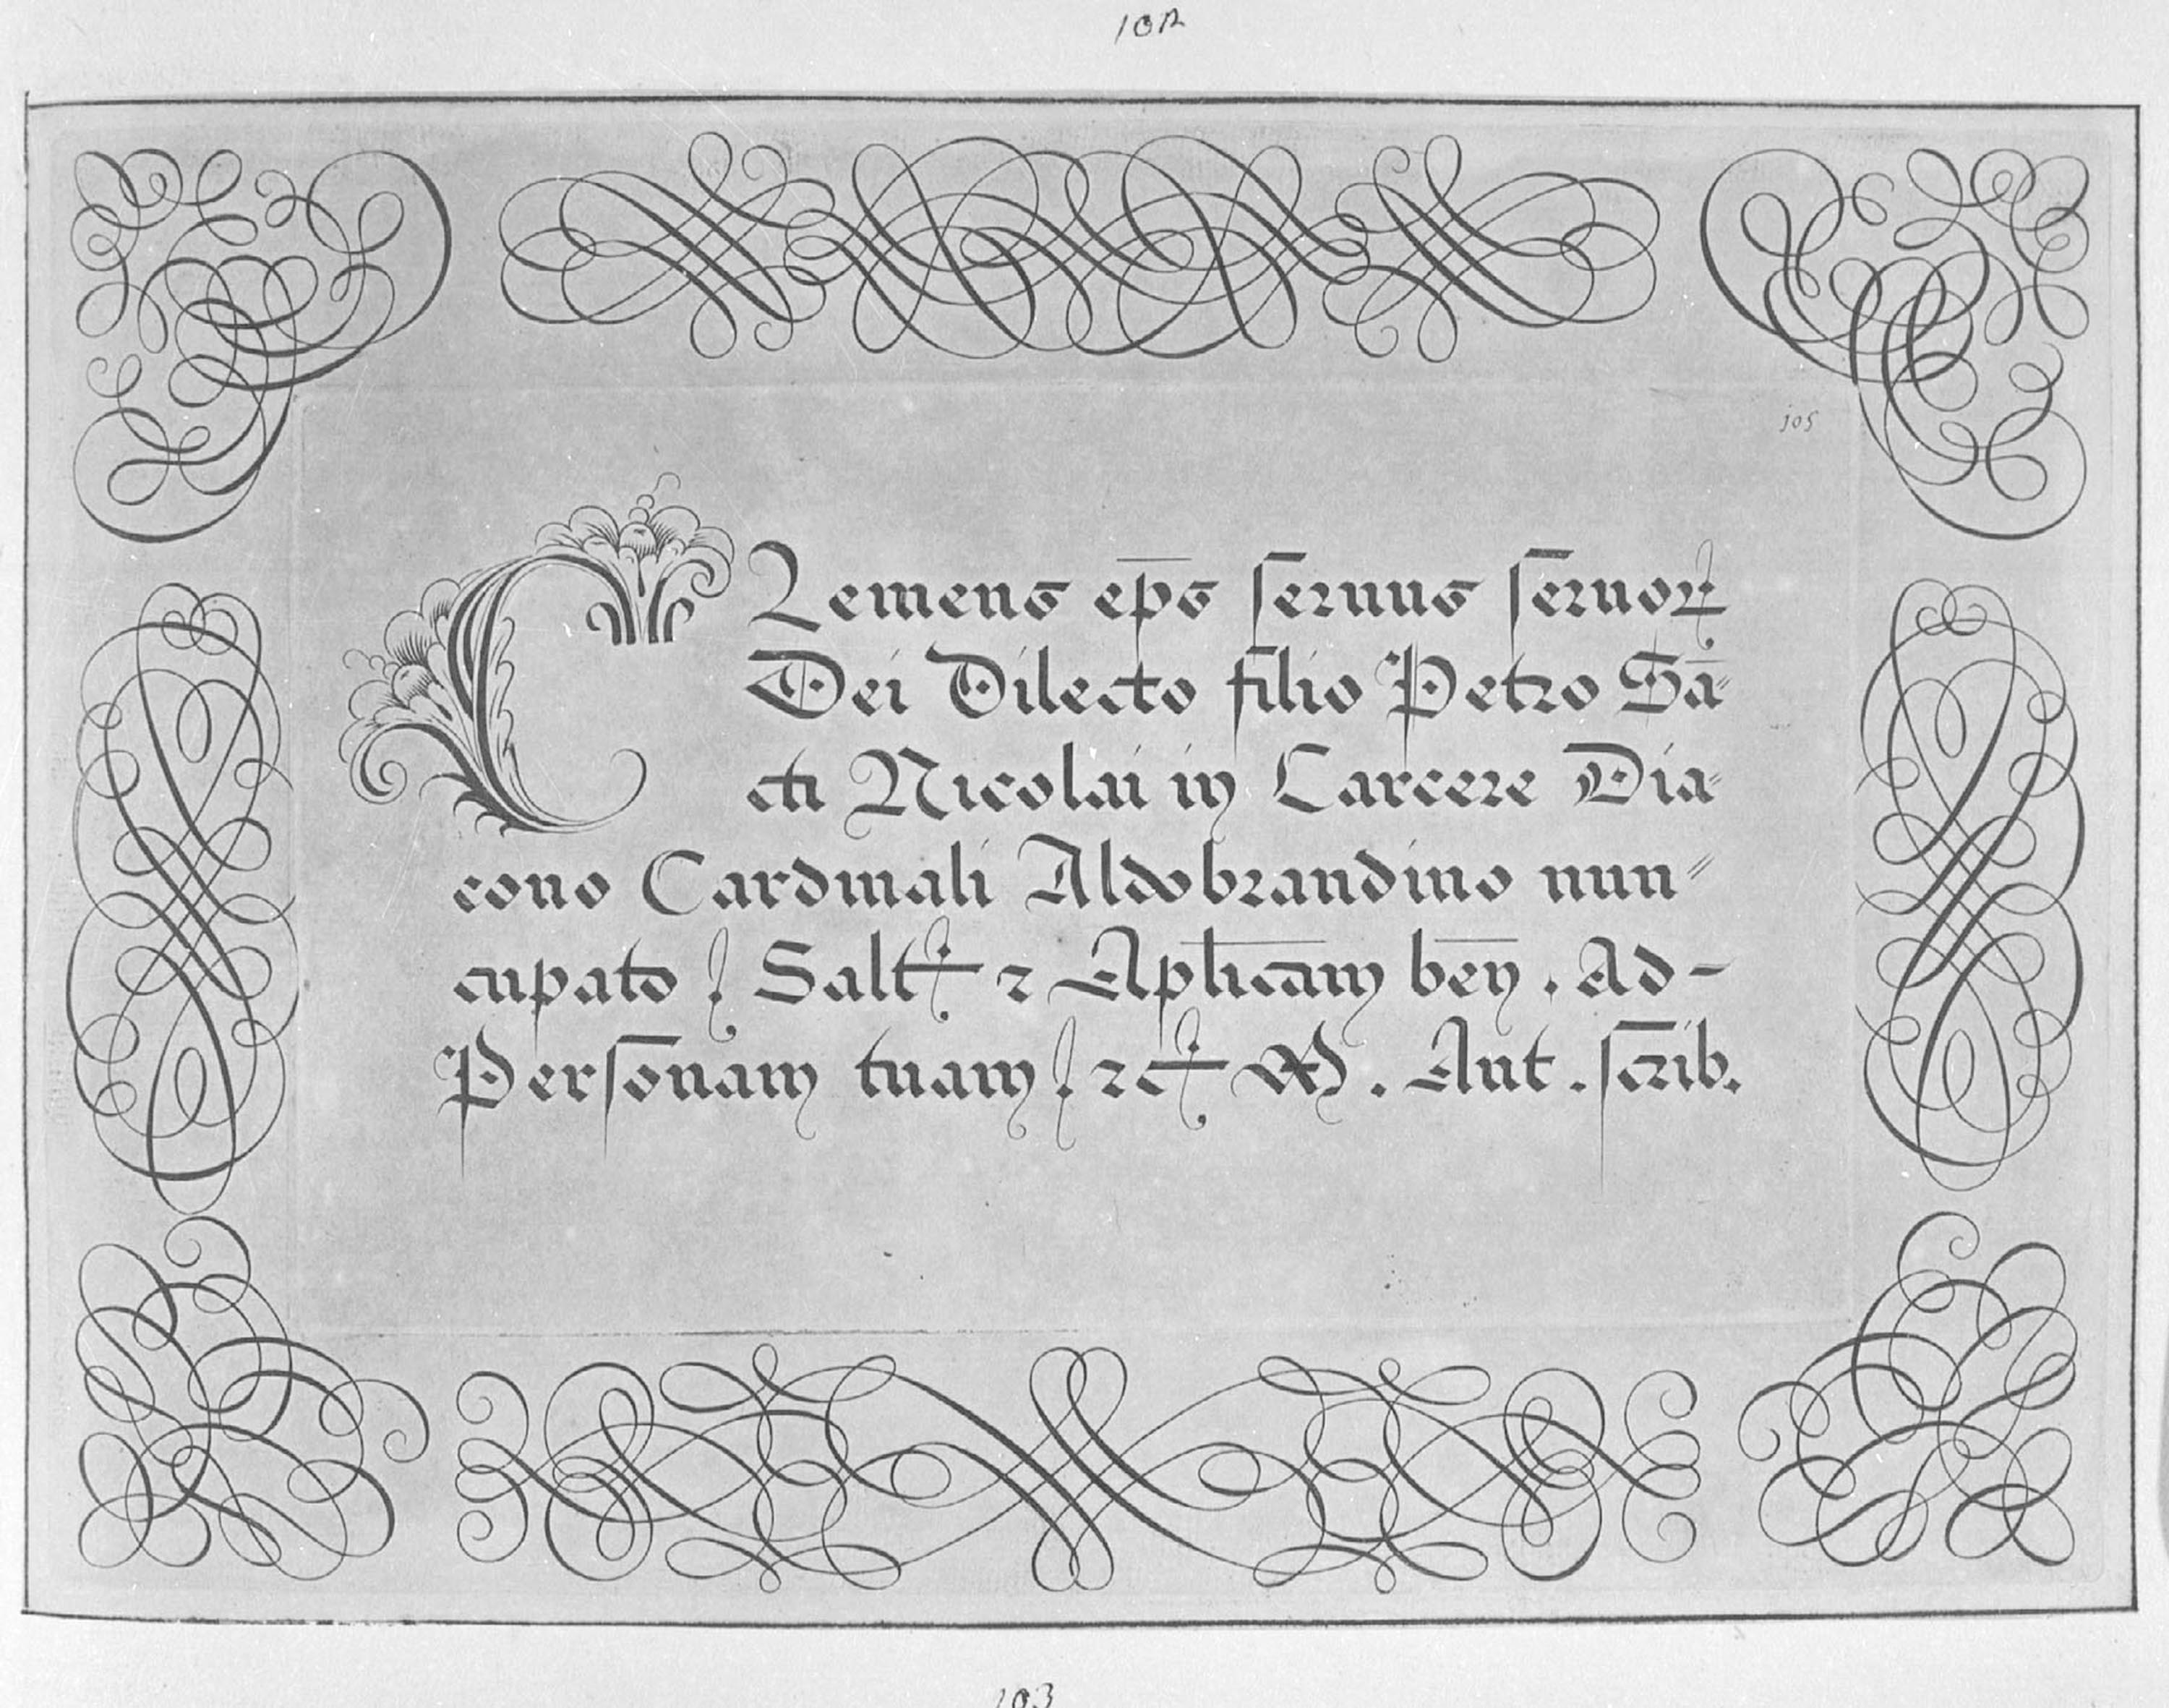 102
jos
Clemens ep̄s seruus seruoꝝ
Dei Dilecto filio Petro Sā-
cti Nicolai in Carcere Dia-
cono Cardinali Aldobrandino nun-
cupato / Salt̄ ꝛ Aplicam̄ ben̄. Ad-
Personam tuam / ꝛc̄ M. Ant. scrib.
103